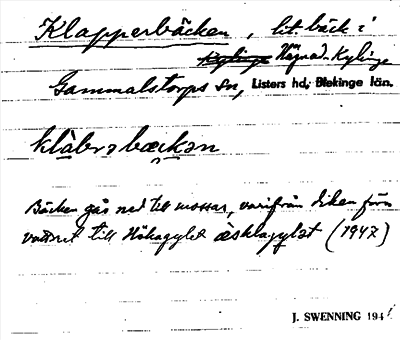 Klapperbäcken, lit. bäck i
Kylinge Hägnad. Kylinge
Gammalstorps sn, Listers hd, Blekinge län.
klàbərbækən
Bäcken går ned till mossar, varifrån diken föra
vattnet till Hökagylet (1947)
J. SWENNING 194